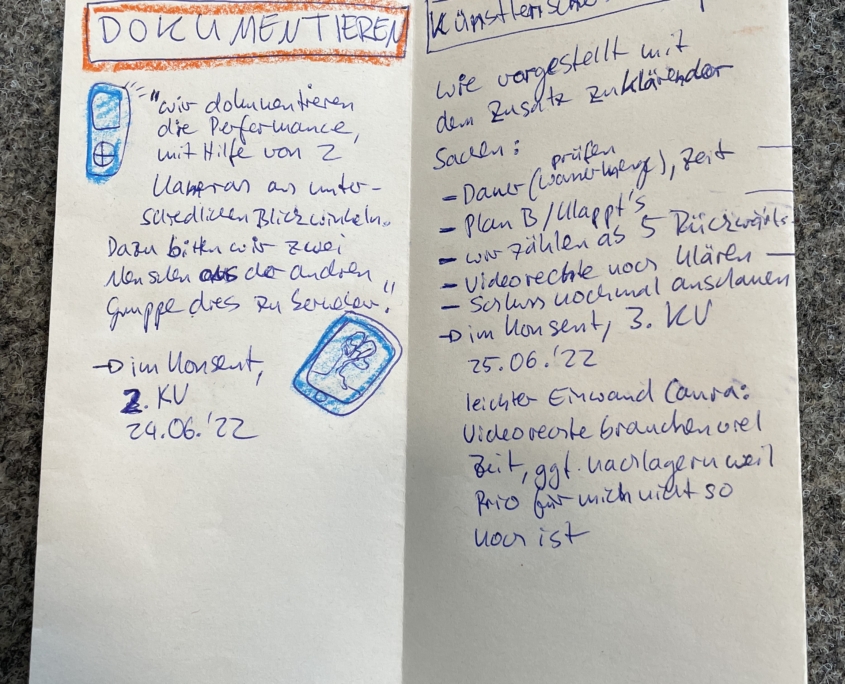 DOKUMENTIEREN
"wir dokumentieren
die Performance,
mit Hilfe von 2
Kameras aus unter-
schiedlichen Blickwinkeln.
Dazu bitten wir zwei
Menschen aus der anderen
Gruppe dies zu
→ im Konsent,
2. KV
24.06.'22
Künstlerische
wie vorgestellt mit
dem Zusatz zuklärender
Sachen:
prüfen
- Dauer (Wassermenge), Zeit
- Plan B / Klappt's
- wir zählen ab 5 Rückwärts
- Videorechte noch klären
- Schluss nochmal anschauen
→ im Konsent, 3. KV
25.06.'22
leichter Einwand Laura:
Videorechte brauchen viel
Zeit, ggf. nachlagern weil
Prio für mich nicht so
hoch ist